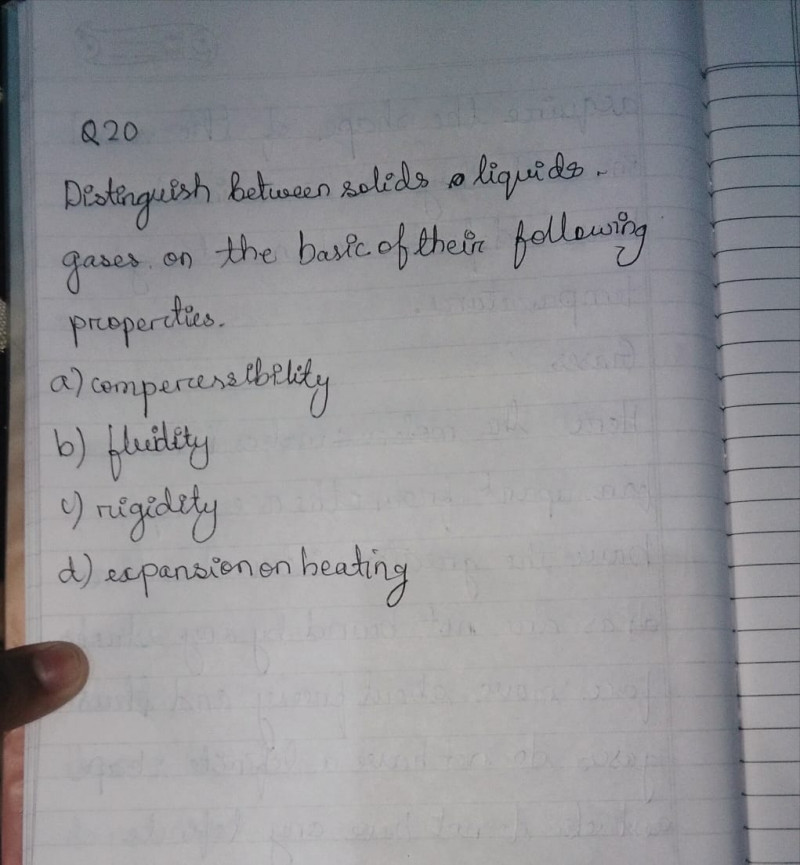 Q20
Distinguish between solids, liquids.
gases on the basic of their following
properties.
a) compercessibility
b) fluidity
c) rigidity
d) expansion on heating